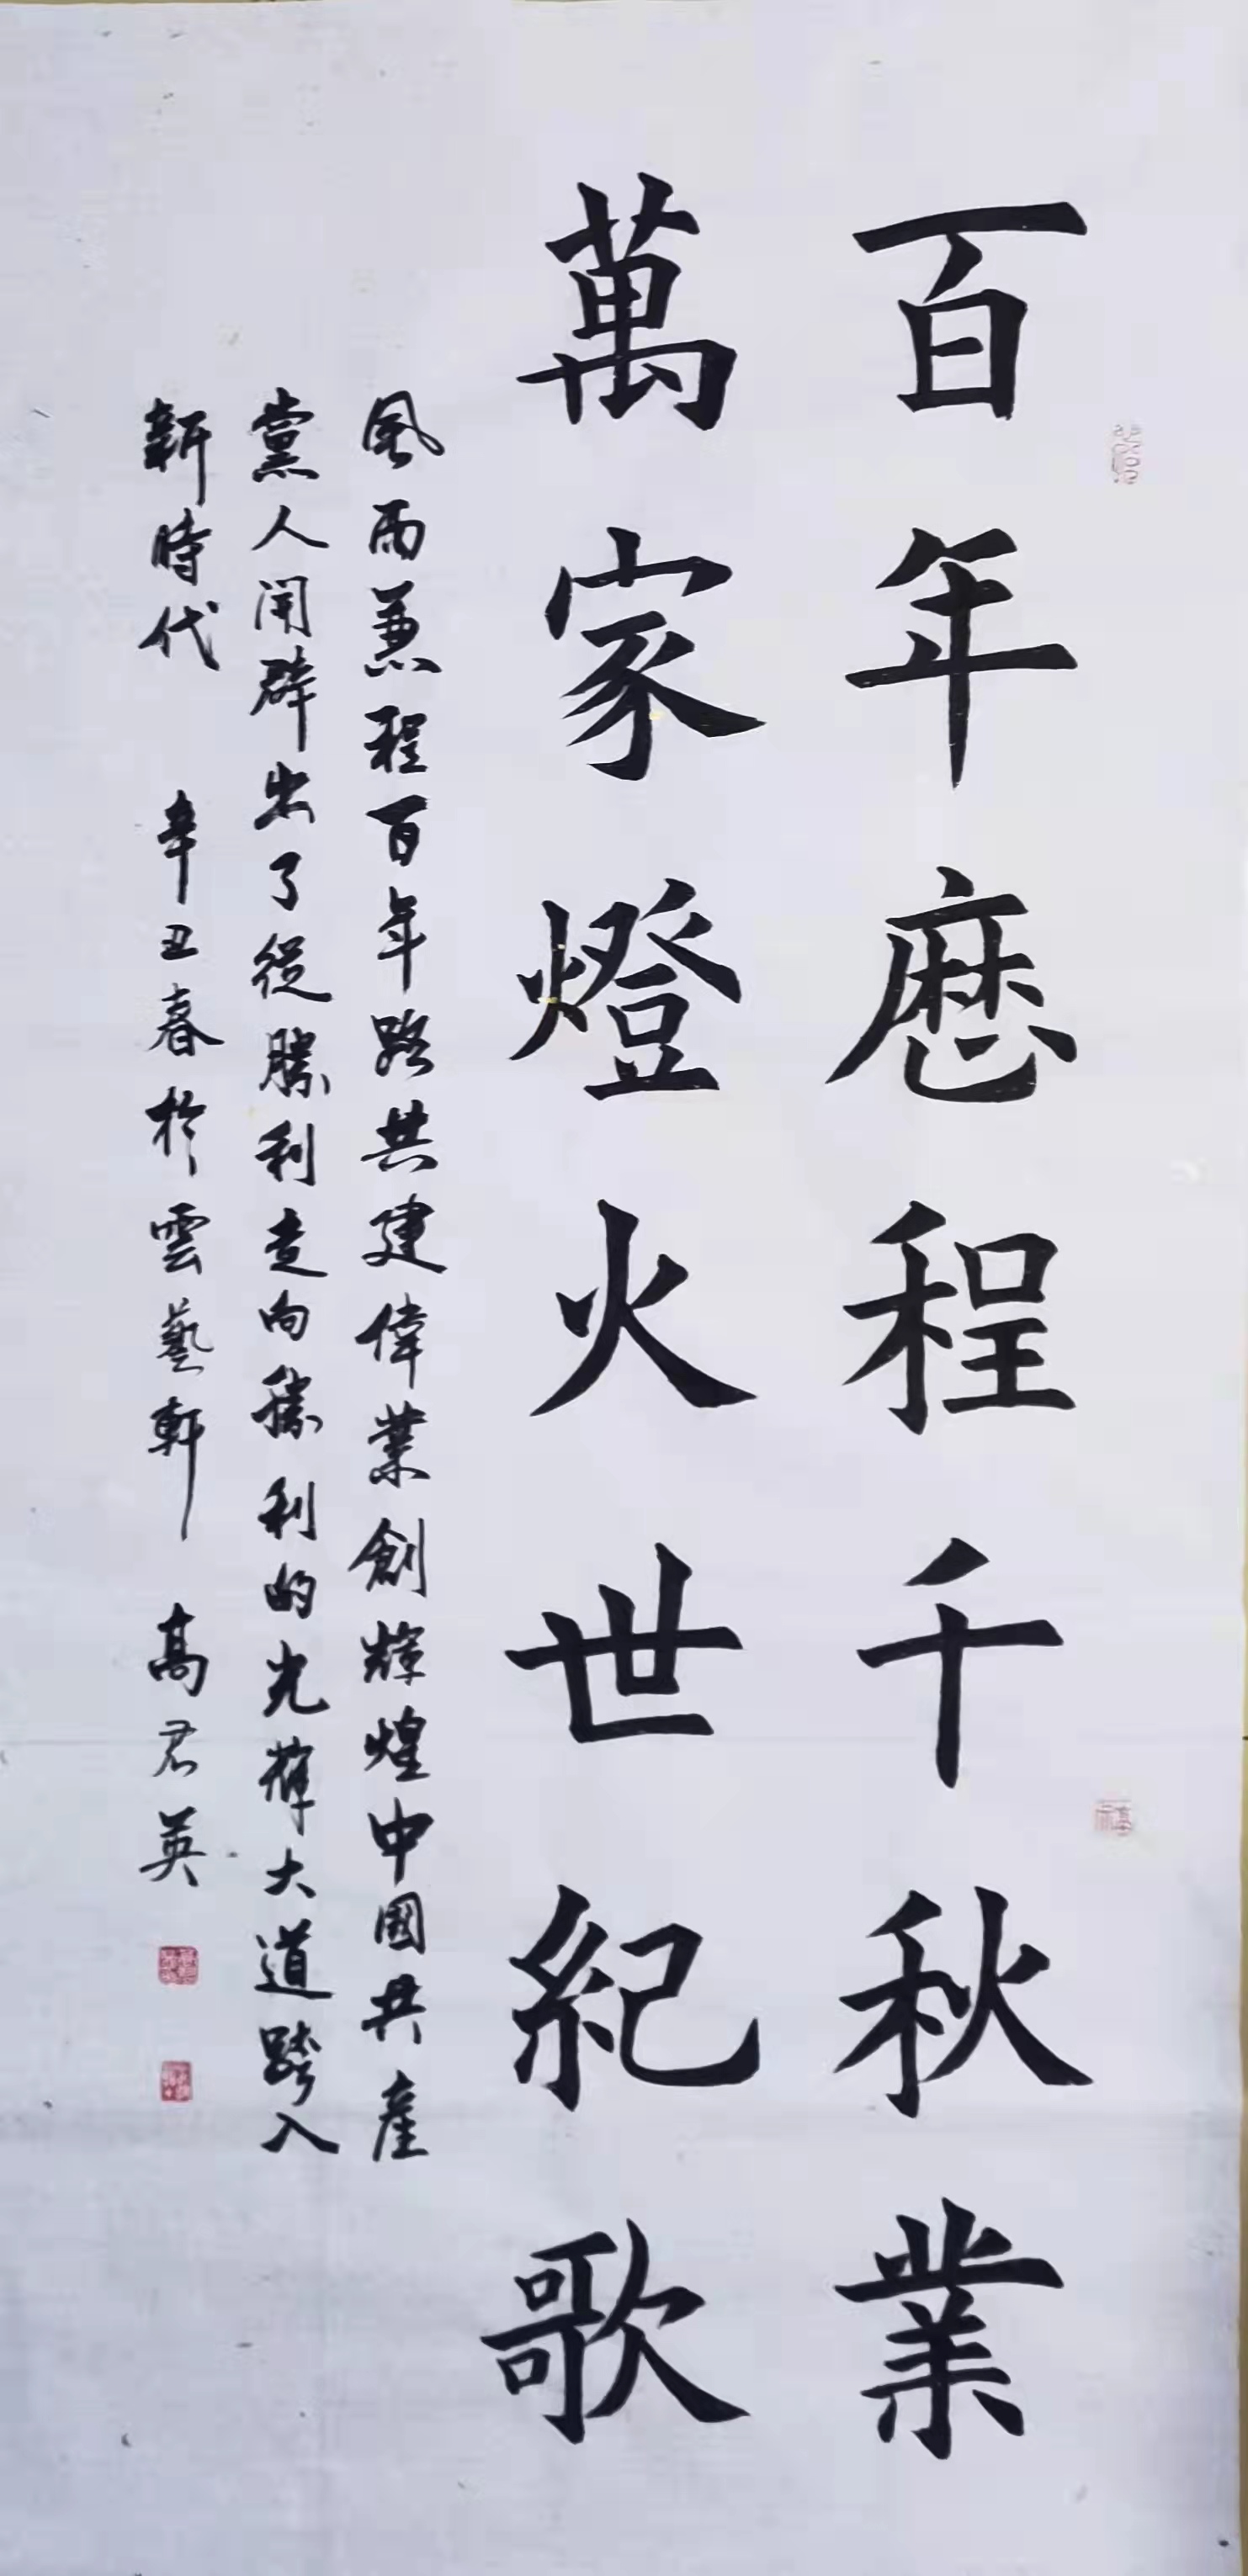 百年歷程千秋業
萬家燈火世紀歌
風雨兼程百年路共建偉業創輝煌中國共產
黨人開辟出了從勝利走向勝利的光輝大道跨入
新時代 辛丑春於雲藝軒 高君英